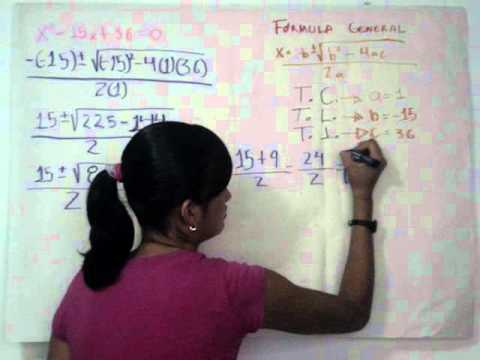 x² - 15x + 36 = 0
-(-15) ± √(-15)² - 4(1)(36)
2(1)
15 ± √225 - 144
2
15 ± √8
2
FORMULA GENERAL
x = -b ± √b² - 4ac
2a
T. C. → a = 1
T. L. → b = -15
T. I. → c = 36
15 + 9 = 24 =
2 2